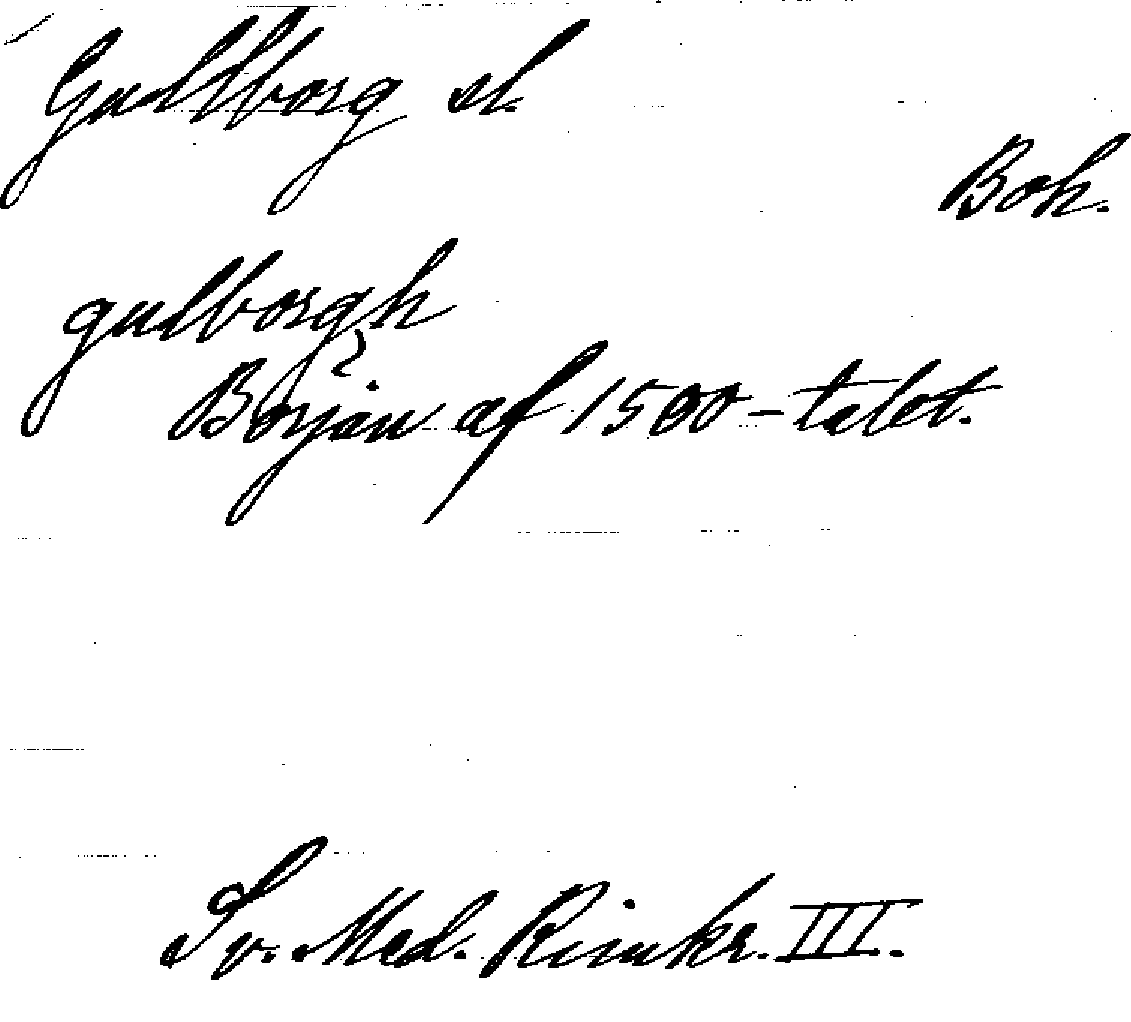 Gullborg sl.
Boh.
gulborgh
?
Början af 1500-talet.
Sv. Med. Rimkr. III.